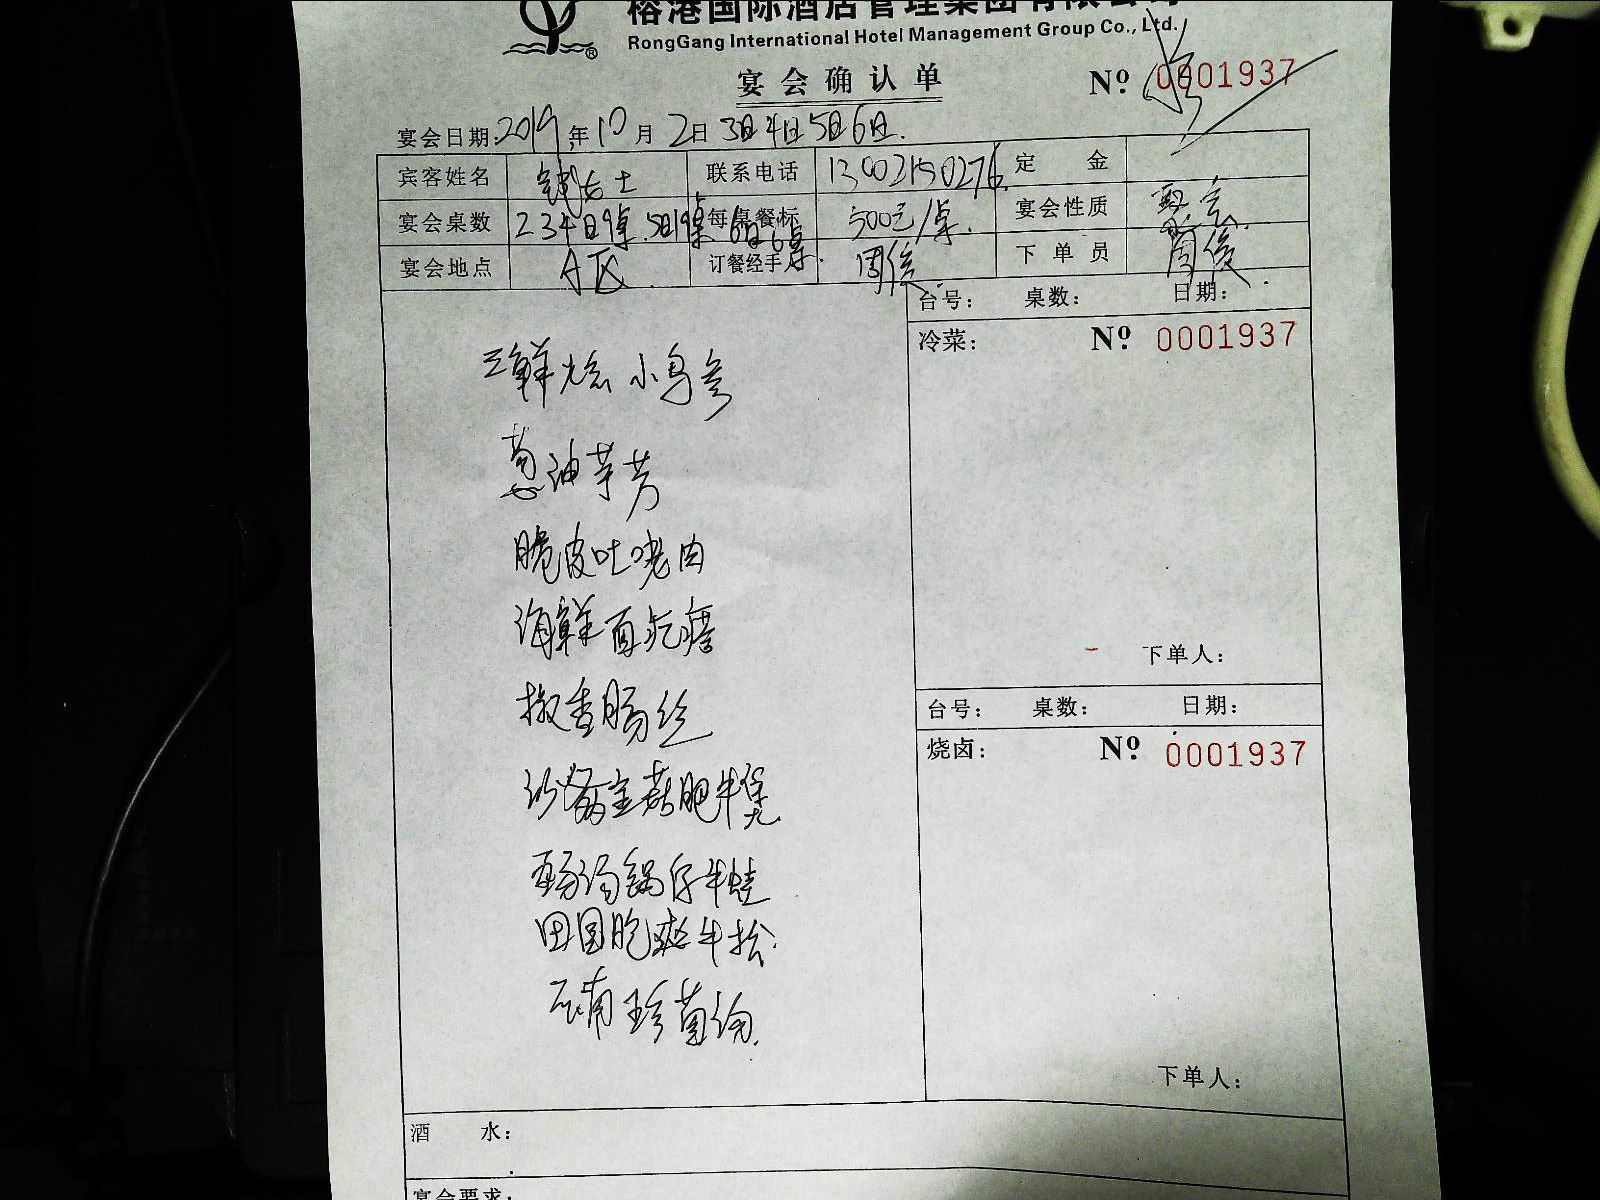 榕港国际酒店管理集团有限公司
RongGang International Hotel Management Group Co., Ltd.
宴会确认单
№ 0001937
宴会日期:2019年10月2日3日4日5日6日.
宾客姓名 女士 联系电话 13002150276 定金
宴会桌数 2 3 4日9桌.5日19桌.6日6桌. 每桌餐标 500元/桌. 宴会性质 聚会
宴会地点 A区 订餐经手 周俊 下单员 周俊
台号: 桌数: 日期:
冷菜: № 0001937
三鲜烩小乌参
葱油芋艿
脆皮吐司肉
海鲜面疙瘩
椒香肠丝
沙茶金菇肥牛煲
汤锅仔牛蛙
田园脆爽牛松
珍菌汤
下单人:
台号: 桌数: 日期:
烧卤: № 0001937
下单人:
酒水:
宴会要求: